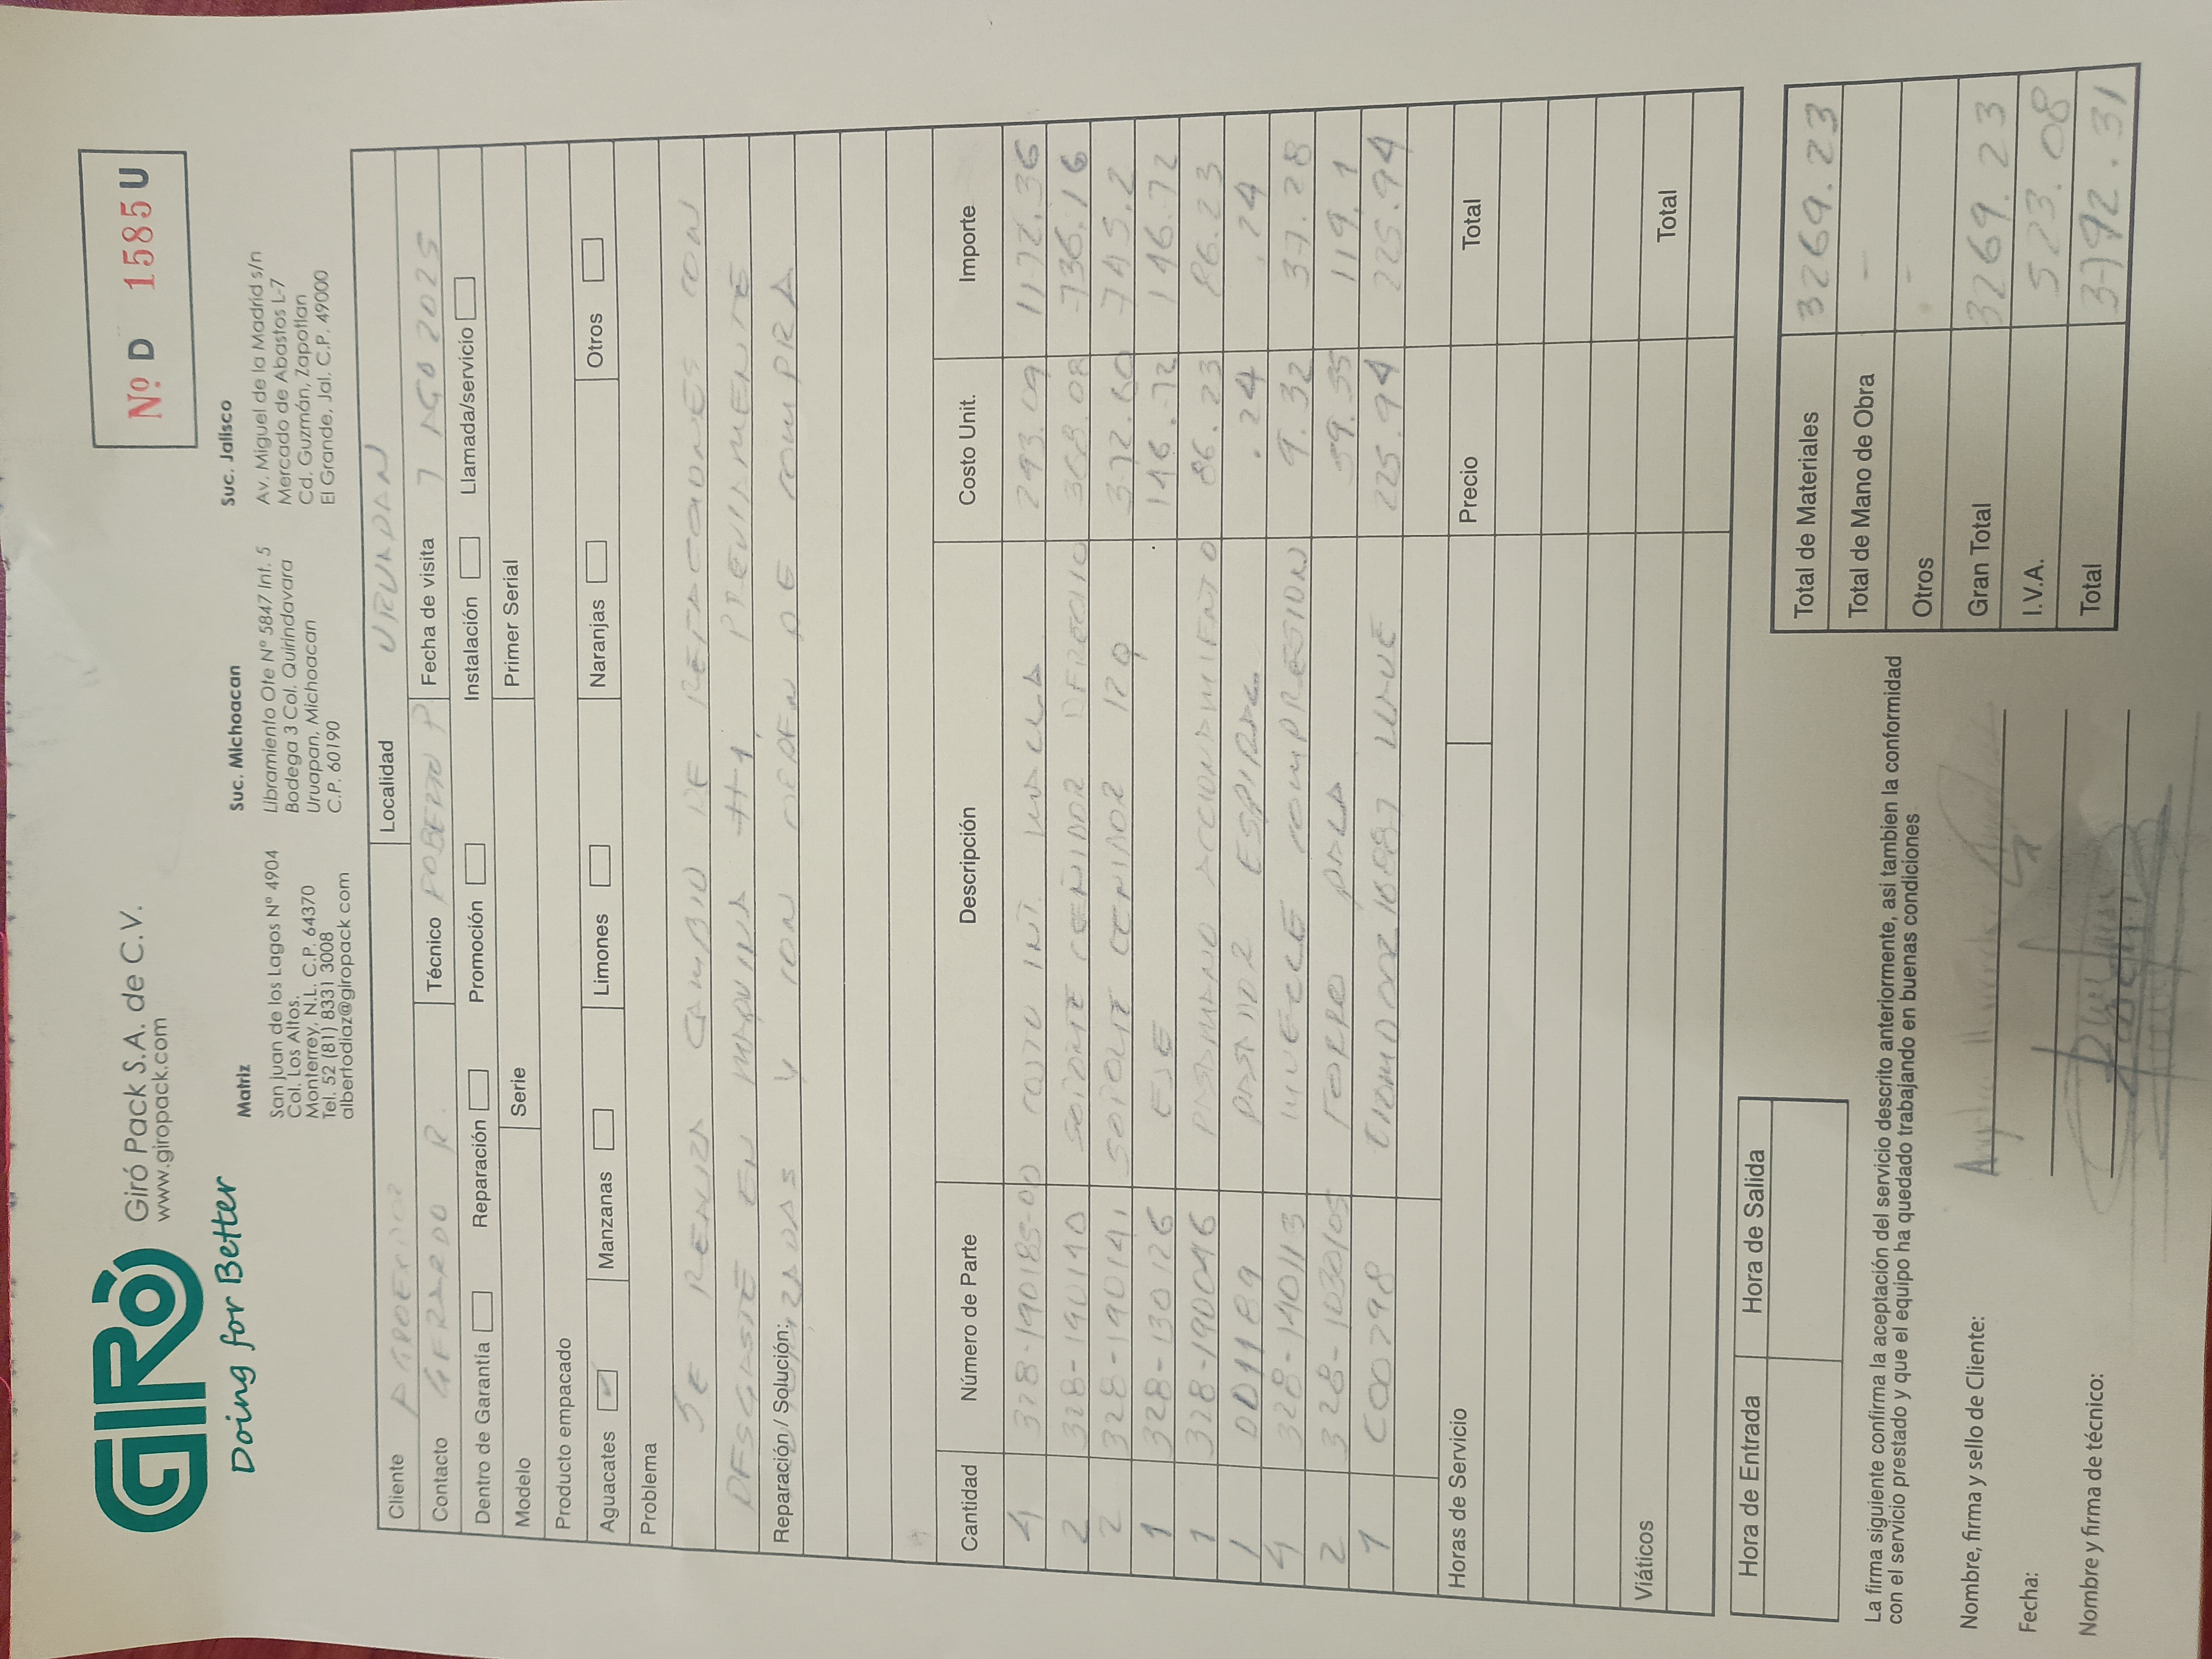 GIRÒ
Doing for Better
Giró Pack S.A. de C.V.
www.giropack.com
Nº D 1585 U
Matriz
San Juan de los Lagos Nº 4904
Col. Los Altos.
Monterrey, N.L. C.P. 64370
Tel. 52 (81) 8331 3008
albertodiaz@giropack com
Suc. Michoacan
Libramiento Ote Nº 5847 Int. 5
Bodega 3 Col. Quirindavara
Uruapan, Michoacan
C.P. 60190
Suc. Jalisco
Av. Miguel de la Madrid s/n
Mercado de Abastos L-7
Cd. Guzmán, Zapotlan
El Grande, Jal. C.P. 49000
Cliente Localidad URUAPAN
Contacto GERARDO R. Técnico ROBERTO P Fecha de visita 7 AGO 2025
Dentro de Garantía Reparación Promoción Instalación Llamada/servicio
Modelo Serie Primer Serial
Producto empacado
Aguacates Manzanas Limones Naranjas Otros
Problema
SE CAMBIO DE REFACCIONES CON
DESGASTE EN MAQUINA H1 PREVIAMENTE
Reparación / Solución: Y CON ORDEN DE COMPRA
Cantidad Número de Parte Descripción Costo Unit. Importe
4 328-190185-00 INT. 293.09 1172.36
2 328-190140 SOPORTE CEÑIDOR DERECHO 368.08 736.16
2 328-190141 SOPORTE CEÑIDOR IZQ 372.60 745.2
1 328-130126 EJE 146.72 146.72
1 328-190046 PASAMANO ACCIONAMIENTO 86.23 86.23
1 DD1189 PASADOR ESPIRAL .24 .24
4 328-140113 MUELLE COMPRESION 9.32 37.28
2 328-1030105 FORRO PALA 59.55 119.1
1 C00798 225.94 225.94
Horas de Servicio Precio Total
Viáticos Total
Hora de Entrada Hora de Salida
Total de Materiales 3269.23
Total de Mano de Obra -
Otros -
Gran Total 3269.23
I.V.A. 523.08
Total 3792.31
La firma siguiente confirma la aceptación del servicio descrito anteriormente, así tambien la conformidad
con el servicio prestado y que el equipo ha quedado trabajando en buenas condiciones
Nombre, firma y sello de Cliente:
Fecha:
Nombre y firma de técnico: